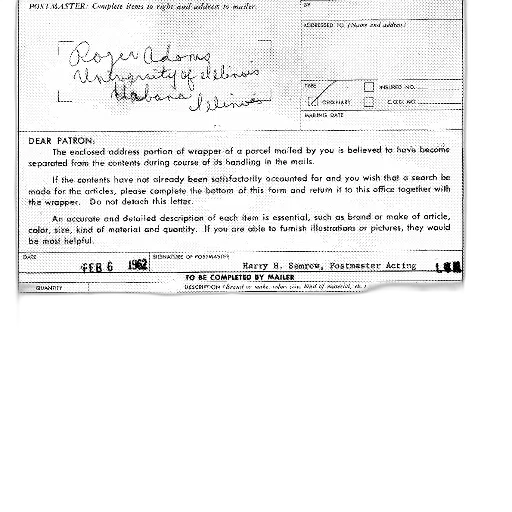 POSTMASTER: Complete items to right and address to mailer.
BY
ADDRESSED TO (Name and address)
Roger Adams
University of Illinois
Urbana Illinois
TYPE
INSURED NO.
ORDINARY
C.O.D. NO.
MAILING DATE
DEAR PATRON:
The enclosed address portion of wrapper of a parcel mailed by you is believed to have become
separated from the contents during course of its handling in the mails.
If the contents have not already been satisfactorily accounted for and you wish that a search be
made for the articles, please complete the bottom of this form and return it to this office together with
the wrapper. Do not detach this letter.
An accurate and detailed description of each item is essential, such as brand or make of article,
color, size, kind of material and quantity. If you are able to furnish illustrations or pictures, they would
be most helpful.
DATE
SIGNATURE OF POSTMASTER
FEB 6 1962
Harry H. Semrow, Postmaster Acting
TO BE COMPLETED BY MAILER
QUANTITY
DESCRIPTION (Brand or make, color, size, kind of material, etc.)